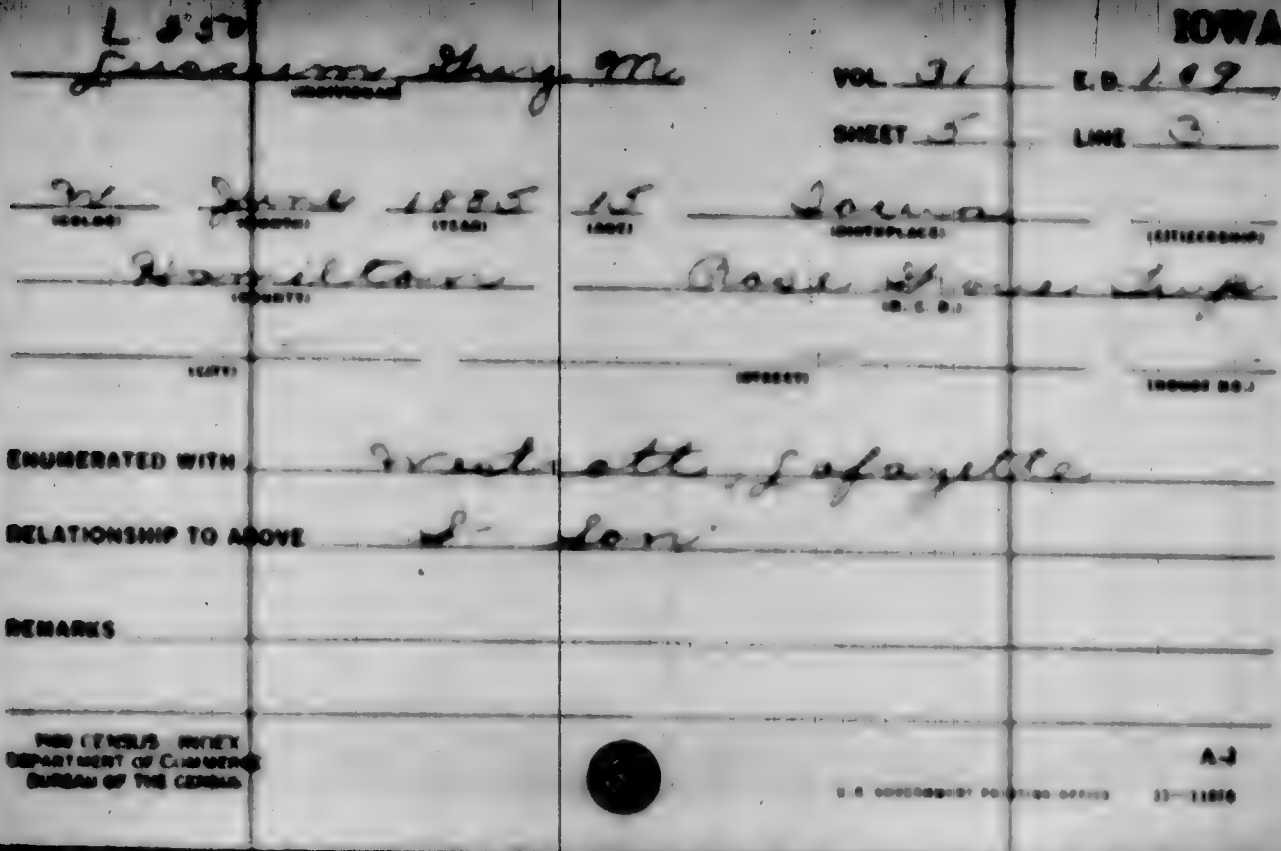 IOWA
L 850
Guy M
(INDIVIDUAL)
VOL. 31 E.D. 109
SHEET 5 LINE 3
W June 1885 15 Iowa
(COLOR) (MONTH) (YEAR) (AGE) (BIRTHPLACE) (CITIZENSHIP)
Hamilton Rose Grove Twp
(COUNTY) (M. C. D.)
(CITY) (STREET) (HOUSE NO.)
ENUMERATED WITH Lafayette
RELATIONSHIP TO ABOVE S- Son
REMARKS
1900 CENSUS INDEX
DEPARTMENT OF COMMERCE
BUREAU OF THE CENSUS
U.S. GOVERNMENT PRINTING OFFICE